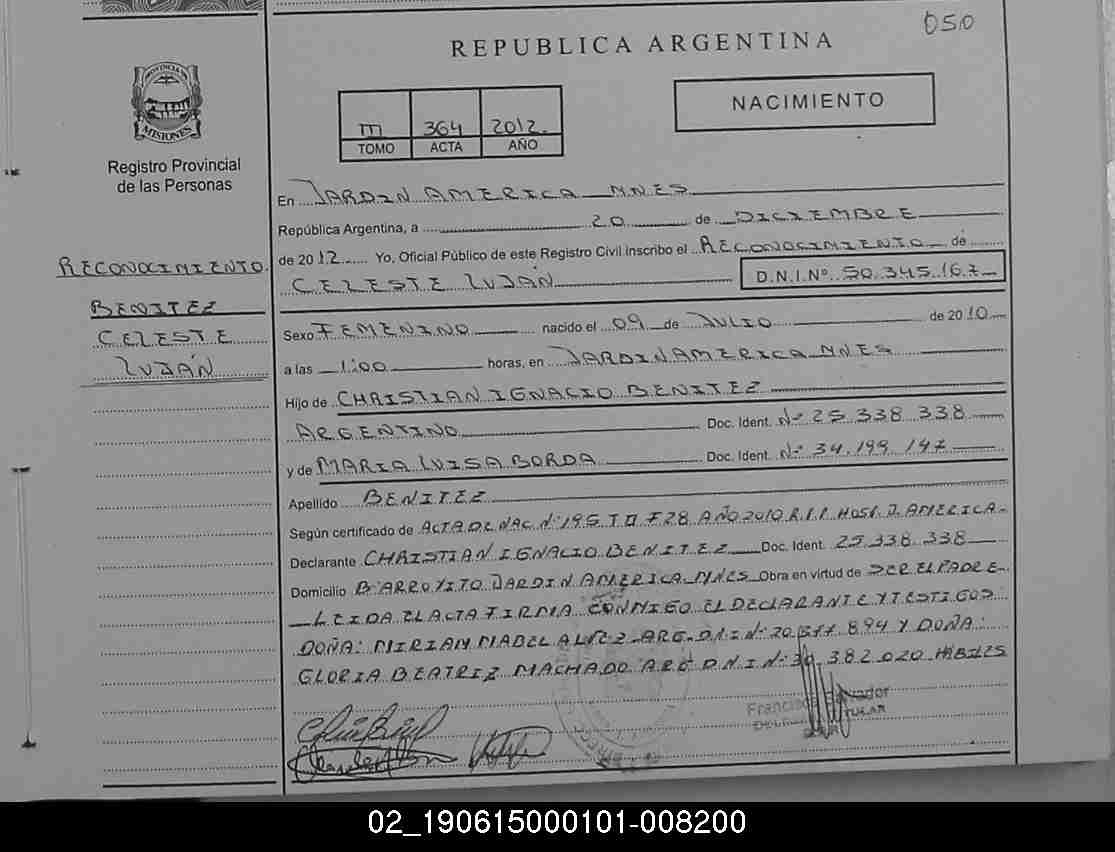 050
REPUBLICA ARGENTINA
PROVINCIA DE
MISIONES
NACIMIENTO
III 364 2012.
TOMO ACTA AÑO
Registro Provincial
de las Personas
En JARDIN AMERICA MNES
República Argentina, a 20 de DICIEMBRE
de 2012 Yo, Oficial Público de este Registro Civil inscribo el RECONOCIMIENTO de
CELESTE LUJÁN D.N.I.Nº 50.345.167
RECONOCIMIENTO
BENITEZ
CELESTE
LUJÁN
Sexo FEMENINO nacido el 09 de JULIO de 2010
a las 1:00 horas, en JARDIN AMERICA MNES
Hijo de CHRISTIAN IGNACIO BENITEZ
ARGENTINO Doc. Ident. Nº 25.338.338
y de MARIA LUISA BORDA Doc. Ident. Nº 34.199.147
Apellido BENITEZ
Según certificado de ACTA DE NAC. Nº 195 T II F 28 AÑO 2010 R.P.P. HOSP. J. AMERICA
Declarante CHRISTIAN IGNACIO BENITEZ Doc. Ident. 25.338.338
Domicilio Bº ARROYITO JARDIN AMERICA MNES Obra en virtud de SER EL PADRE
LEIDA EL ACTA FIRMA CONMIGO EL DECLARANTE Y TESTIGOS
DOÑA: MIRIAM MABEL ARG. D.N.I Nº 20 894 Y DOÑA:
GLORIA BEATRIZ MACHADO ARG D N I Nº 382 020 HABILES
Francisco
TITULAR
02_190615000101-008200